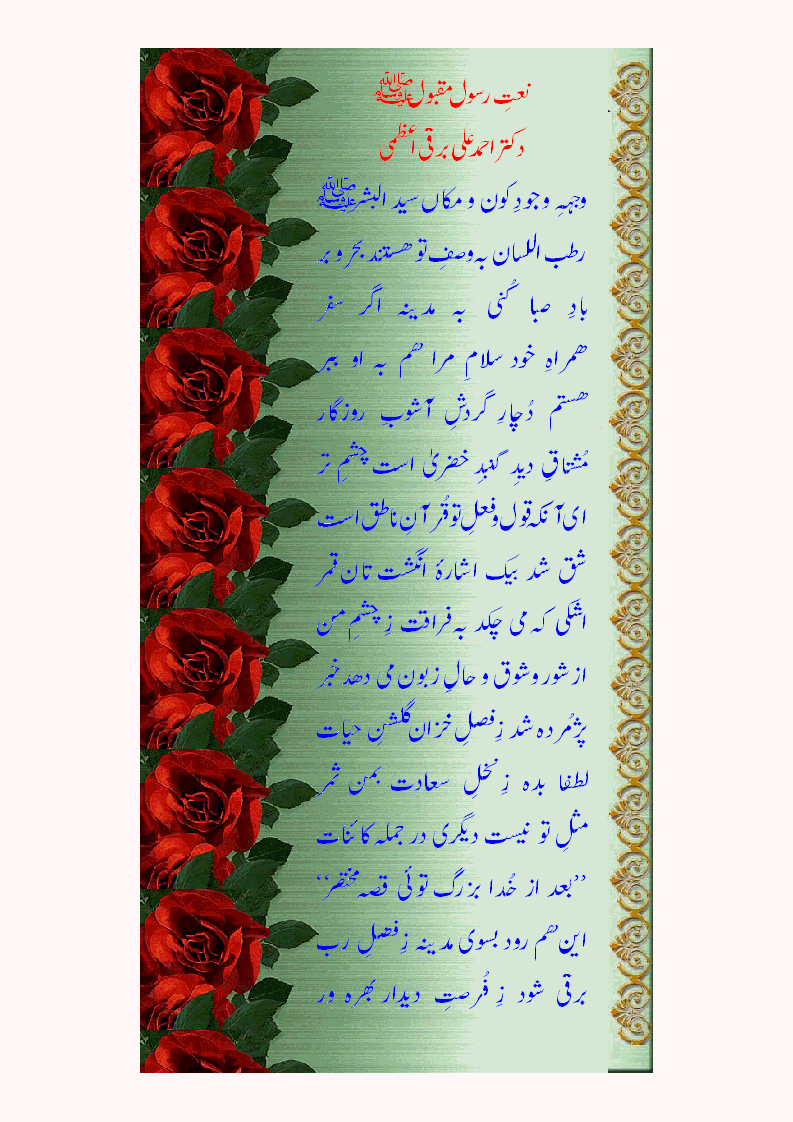 نعتِ رسول مقبول ﷺ
دکتر احمد علی برقی اعظمی
وجہہِ وجودِ کون و مکاں سید البشر ﷺ
رطب اللسان بہ وصفِ تو ھستند بحر و بر
بادِ صبا کُنی بہ مدینہ اگر سفر
ھمراہِ خود سلامِ مرا ھم بہ او ببر
ھستم دُچارِ گردشِ آشوبِ روزگار
مُشتاقِ دیدِ گنبدِ خضریٰ است چشمِ تر
ای آنکہ قول و فعلِ تو قُرآنِ ناطق است
شق شد بیک اشارۂ انگشت تان قمر
اشکی کہ می چکد بہ فراقت زِ چشمِ من
از شور و شوق و حالِ زبون می دھد خبر
پژمُردہ شد زِ فصلِ خزان گلشنِ حیات
لطفا بدہ زِ نخلِ سعادت بمن ثمر
مثلِ تو نیست دیگری در جملہ کائنات
’’بعد از خُدا بزرگ توئی قصہ مختصر‘‘
این ھم رود بسوی مدینہ زِ فضلِ رب
برقی شود زِ فُرصتِ دیدار بھرہ ور